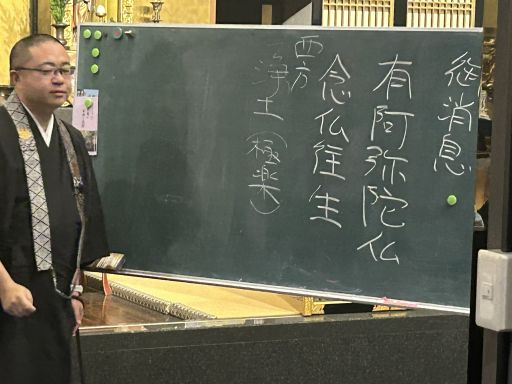 御消息
有阿弥陀仏
念仏往生
西方
浄土(極楽)